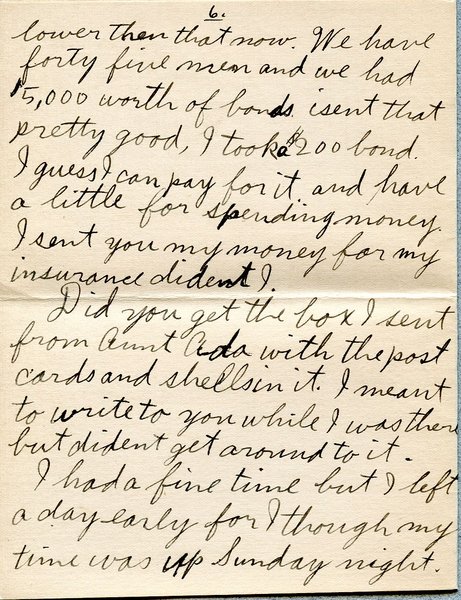 6.
lower then that now. We have
forty five men and we had
$5,000 worth of bonds isent that
pretty good, I took a $200 bond.
I guess I can pay for it and have
a little for spending money.
I sent you my money for my
insurance dident I.
Did you get the box I sent
from Aunt Ada with the post
cards and shells in it. I meant
to write to you while I was there
but dident get around to it.
I had a fine time but I left
a day early for I though my
time was up Sunday night.